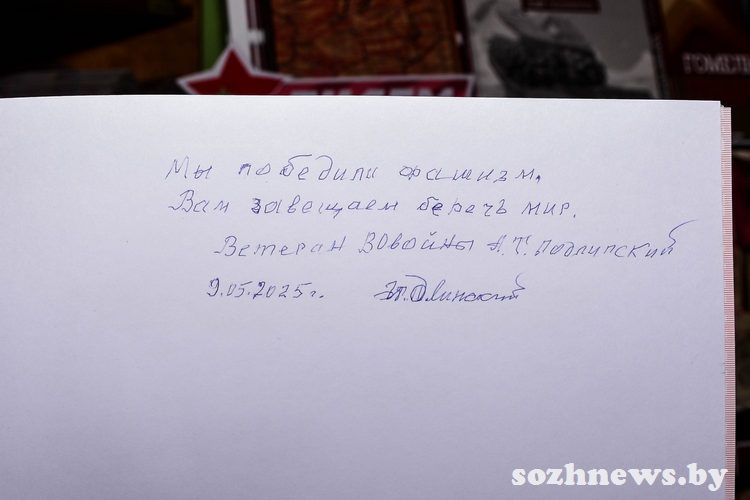 ГОМЕЛЬ
Мы победили фашизм.
Вам завещаем беречь мир.
Ветеран ВОвойны А.Т. Подлипский
9.05.2025г.
sozhnews.by